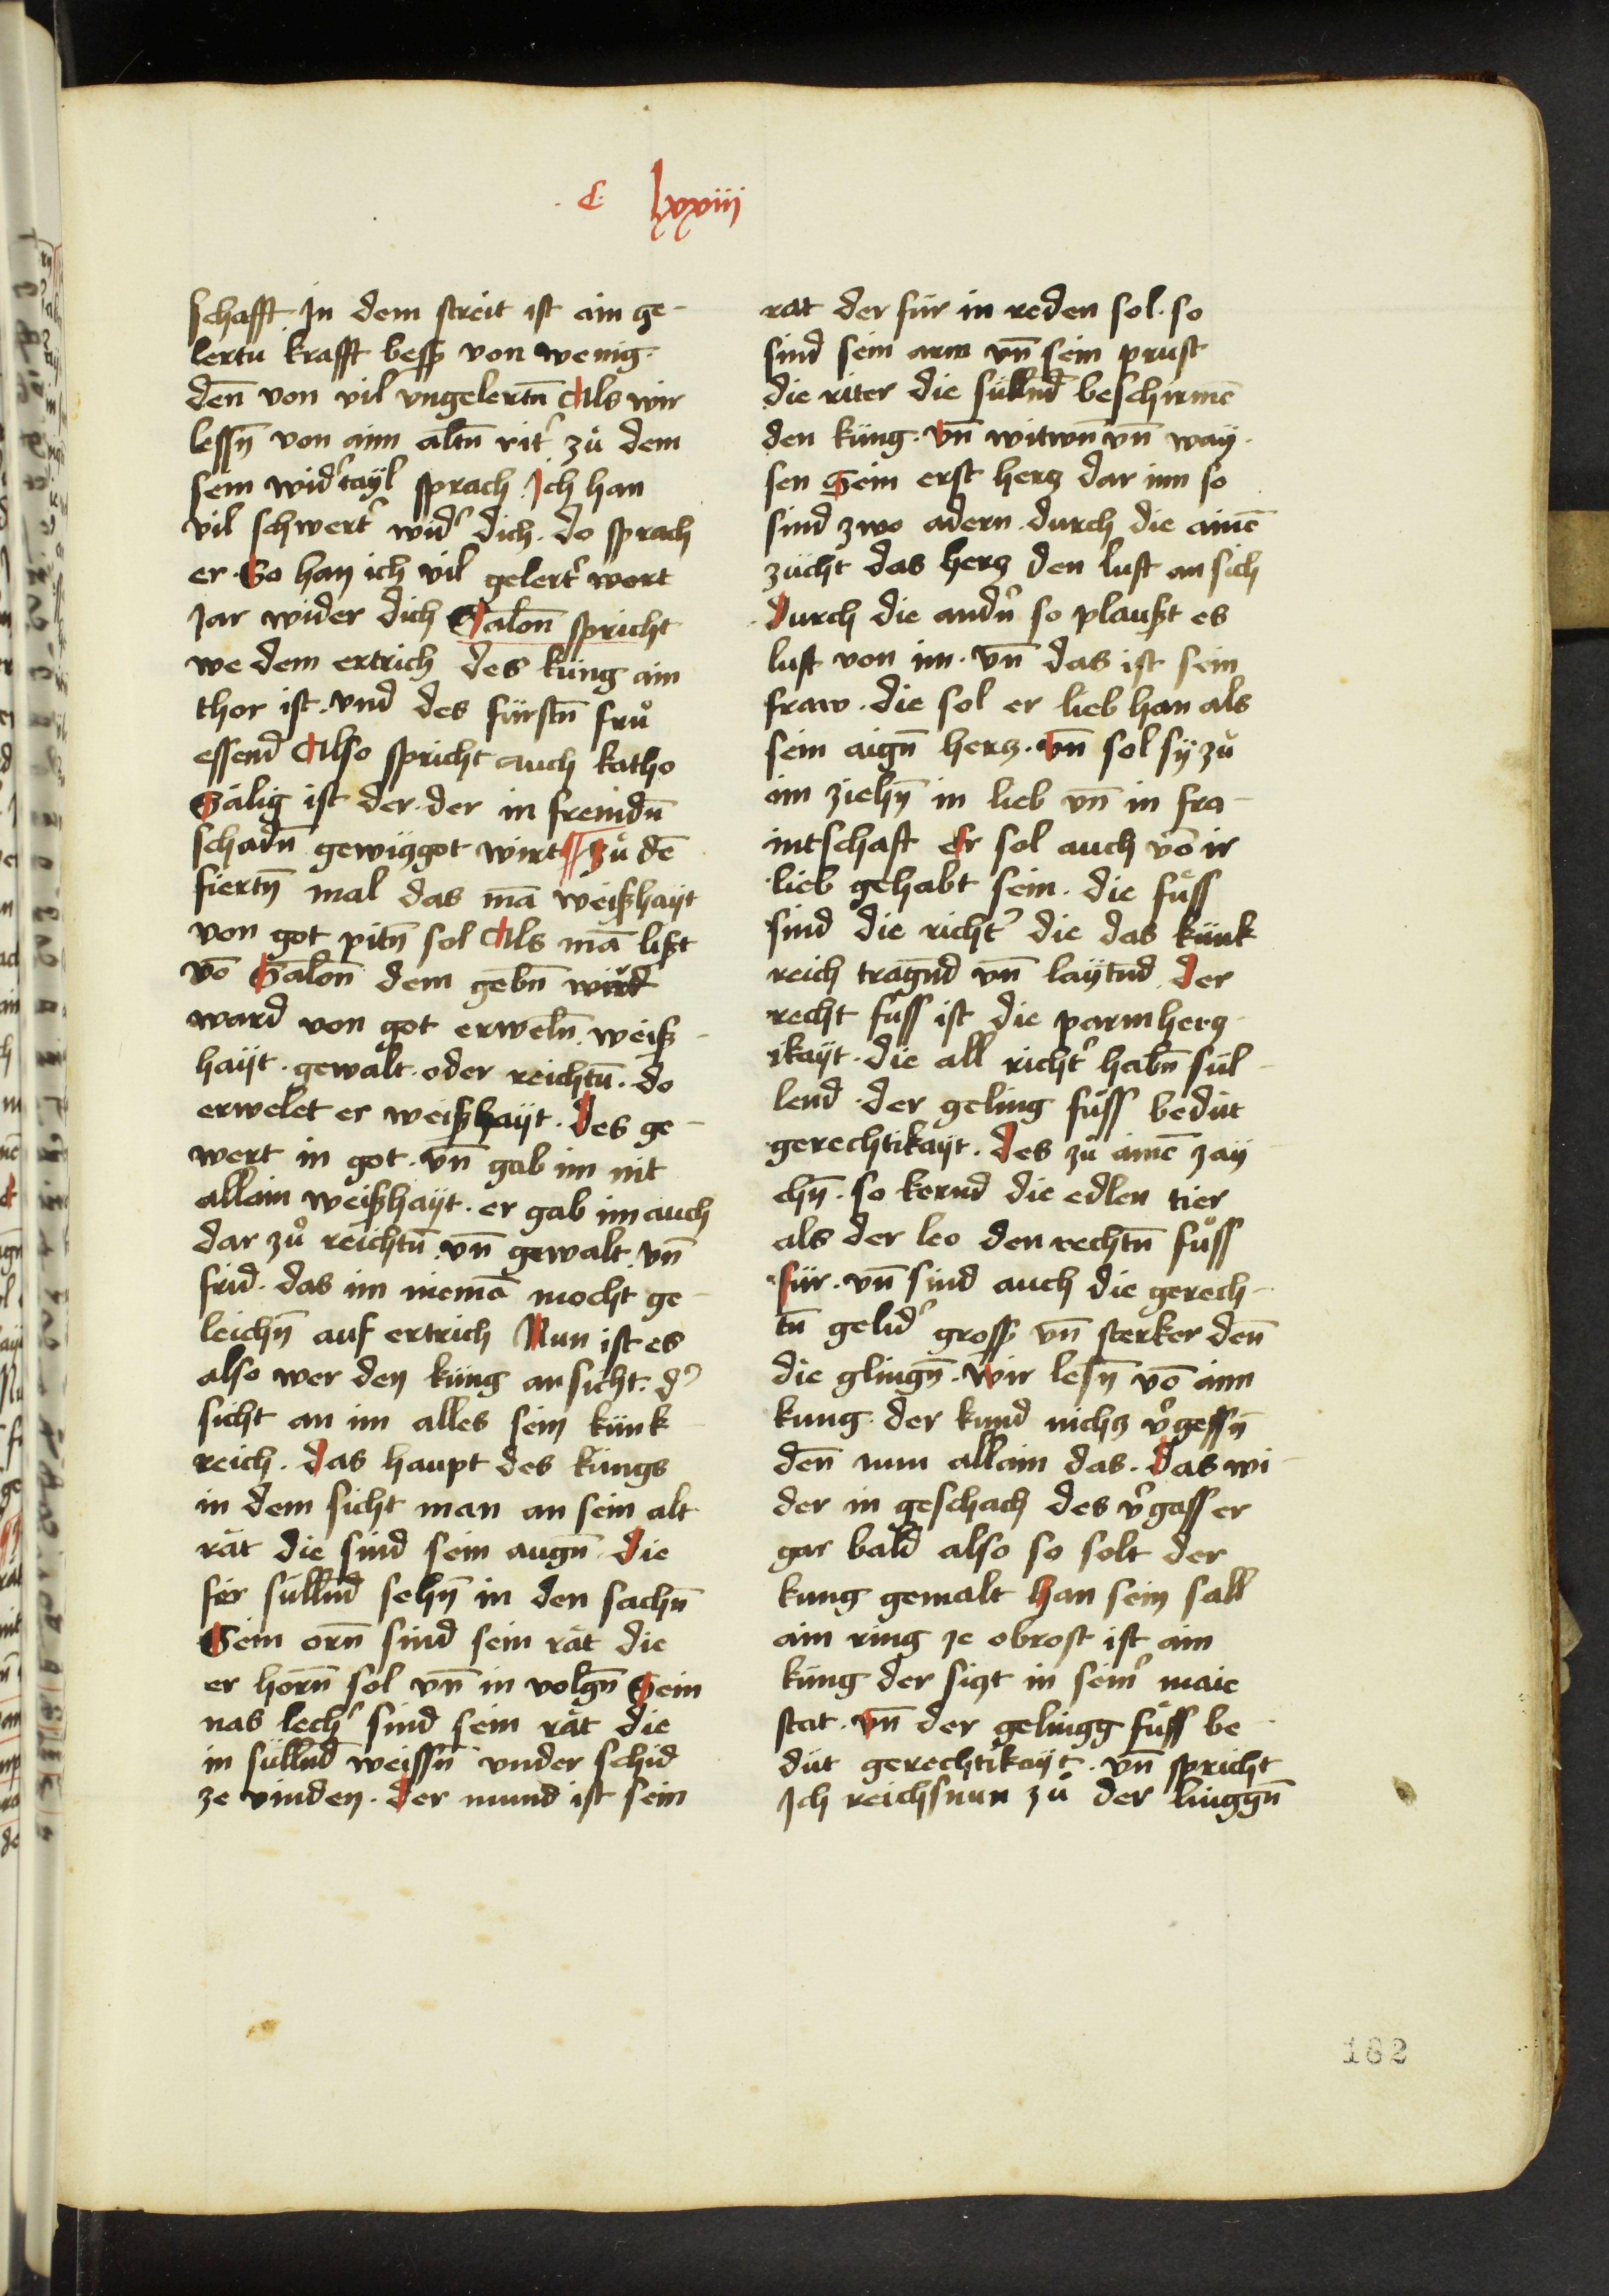 C lxxviii
schafft Jn dem streit ist ain ge-
lertu krafft bess von wenig
deñ von vil vngelertn̄ Als wir
lessn̄ von ainn altn̄ rit̓ zů dem
sein wid̓tayl sprach Jch han
vil schwert̓ wid̓ dich. do sprach
er. So han ich vil gelert̓ wort
Jar wider dich Salon̄ spricht
we dem ertrich des küng ain
thor ist. vnd des fürstn̄ frů
essend Also spricht auch katho
Sälig ist der. der in fremdn̄
schadn̄ gewiggot wirt Zů dē
fiertn̄ mal das mā weißhayt
von got pitn̄ sol Als mā lißt
vō Salon̄ dem gebn̄ wird
ward von got erweln̄ weiß
hayt. gewalt. oder reichtū. do
erwelet er weißhayt. Des ge-
wert in got. vn̄ gab im nit
allain weißhayt. er gab im auch
dar zů reichtū vn̄ gewalt. vn̄
frid. das im niemā mocht ge-
leichn̄ auf ertrich Nun ist es
also wer den küng an sicht. d̓
sicht an im alles sein künk-
reich. Das haupt des küngs
in dem sicht man an sein alt
rät die sind sein augn̄. Die
fer süllnd sehn̄ in den sachn̄
Sein orn̄ sind sein rät die
er hörn̄ sol vn̄ in volgn̄ Sein
nas lech̓ sind sein rät die
in süllnd weissn̄ vnder schid
ze vinden. Der mund ist sein
rat der für in reden sol. so
sind sein arm vn̄ sein prust
die riter die süllnd beschirmē
den küng. vn̄ witwn̄ vn̄ way-
sen Sein erst herz dar inn so
sind zwo adern. durch die ainē
zücht das herz den luft an sich
Durch die andn̓ so plaußt es
luft von im. vn̄ das ist sein
fraw. die sol er lieb han als
sein aign̄ herz. vn̄ sol sy zů
im ziehn̄ in lieb vn̄ in fra-
intschaft Er sol auch vō ir
lieb gehabt sein. die füss
sind die richt̓ die das künk
reich tragnd vn̄ laytnd Der
recht fůss ist die parmherz-
ikayt. die all richt̓ habn̄ sül-
lend. der geling fůss bedüt
gerechtikayt. Des zů ainē zay-
chn̄. so kernd die edlen tier
als der leo den rechtn̄ fůss
für. vn̄ sind auch die gerech-
tn̄ gelid̓ gross vn̄ sterker deñ
die glingn̄. Wir lesn̄ vō ainn
kung. der kund nichz v̓gessn̄
deñ nun allain das. Das wi-
der in geschach des v̓gass er
gar bald also so solt der
kung gemalt han sein sall
ain ring ze obrost ist ain
küng der sizt in sein̓ maie
stat. vn̄ der gelingg fůss be-
düt gerechtikayt. vn̄ spricht
Jch reichsnun zů der linggn̄
182